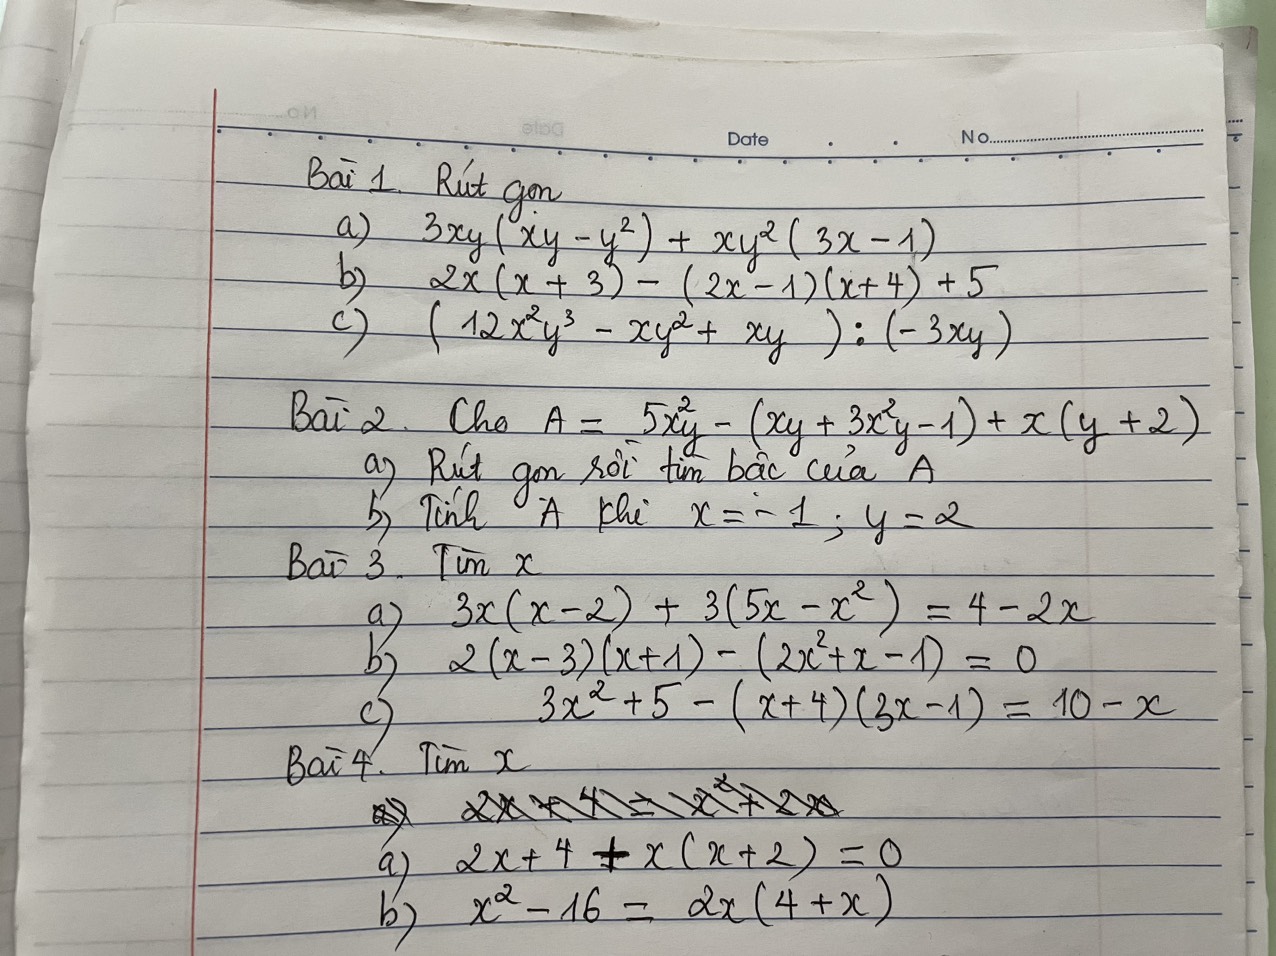 Date No
Bài 1. Rút gọn
a) 3xy(xy - y²) + xy²(3x - 1)
b) 2x(x + 3) - (2x - 1)(x+4) + 5
c) (12x²y³ - xy² + xy) : (-3xy)
Bài 2. Cho A = 5x²y - (xy + 3x²y - 1) + x(y + 2)
a) Rút gọn rồi tìm bậc của A
b) Tính A khi x = -1 ; y = 2
Bài 3. Tìm x
a) 3x(x - 2) + 3(5x - x²) = 4 - 2x
b) 2(x - 3)(x+1) - (2x² + x - 1) = 0
c) 3x² + 5 - (x+4)(3x - 1) = 10 - x
Bài 4. Tìm x
a) 2x + 4 = x² + 2x
a) 2x + 4 + x(x+2) = 0
b) x² - 16 = 2x(4 + x)